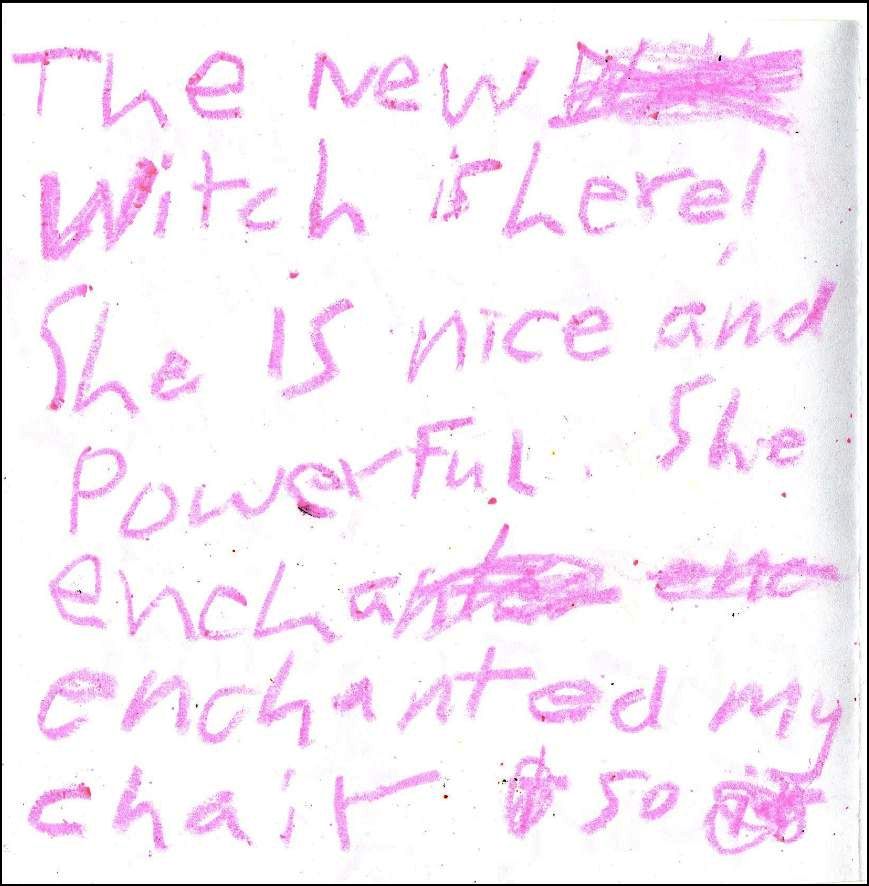 The New
Witch is here!
She Is nice and
Powerful. She
encha
enchanted my
chair so